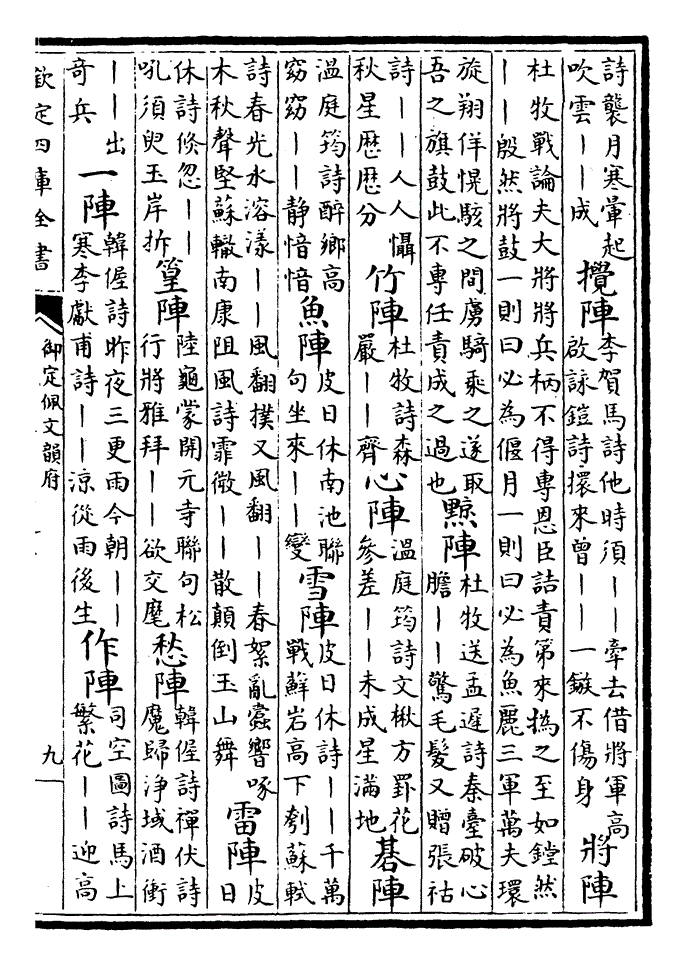 詩襲月寒暈起
吹雲丨丨成
攪陣
李賀馬詩他時須丨丨牽去借將軍高
啟詠鎧詩擐來曾丨丨一鏃不傷身
將陣
杜牧戰論夫大將將兵柄不得專恩臣詰責第來撝之至如鏜然
丨丨殷然將鼓一則曰必為偃月一則曰必為魚麗三軍萬夫環
旋翔佯愰駭之間虜騎乘之遂取
吾之旗鼓此不專任責成之過也
黥陣
杜牧送孟遲詩秦臺破心
膽丨丨驚毛髮又贈張祜
詩丨丨人人懾
秋星歴歴分
竹陣
杜牧詩森
嚴丨丨齊
心陣
溫庭筠詩文楸方罫花
參差丨丨未成星滿地
棊陣
溫庭筠詩醉鄉高
窈窈丨丨静愔愔
魚陣
皮日休南池聯
句坐來丨丨變
雪陣
皮日休詩丨丨千萬
戰蘚岩高下刳蘇軾
詩春光水溶漾丨丨風翻撲又風翻丨丨春絮亂蠧響啄
木秋聲堅蘇轍南康阻風詩霏微丨丨散顛倒玉山舞
雷陣
皮
日
休詩倐忽丨丨
吼須臾玉岸拆
篁陣
陸龜蒙開元寺聯句松
行將雅拜丨丨欲交麾
愁陣
韓偓詩禪伏詩
魔歸浄域酒衝
丨丨出
奇兵
一陣
韓偓詩昨夜三更雨今朝丨丨
寒李獻甫詩丨丨涼從雨後生
作陣
司空圖詩馬上
繁花丨丨迎高
欽定四庫全書
御定佩文韻府
九